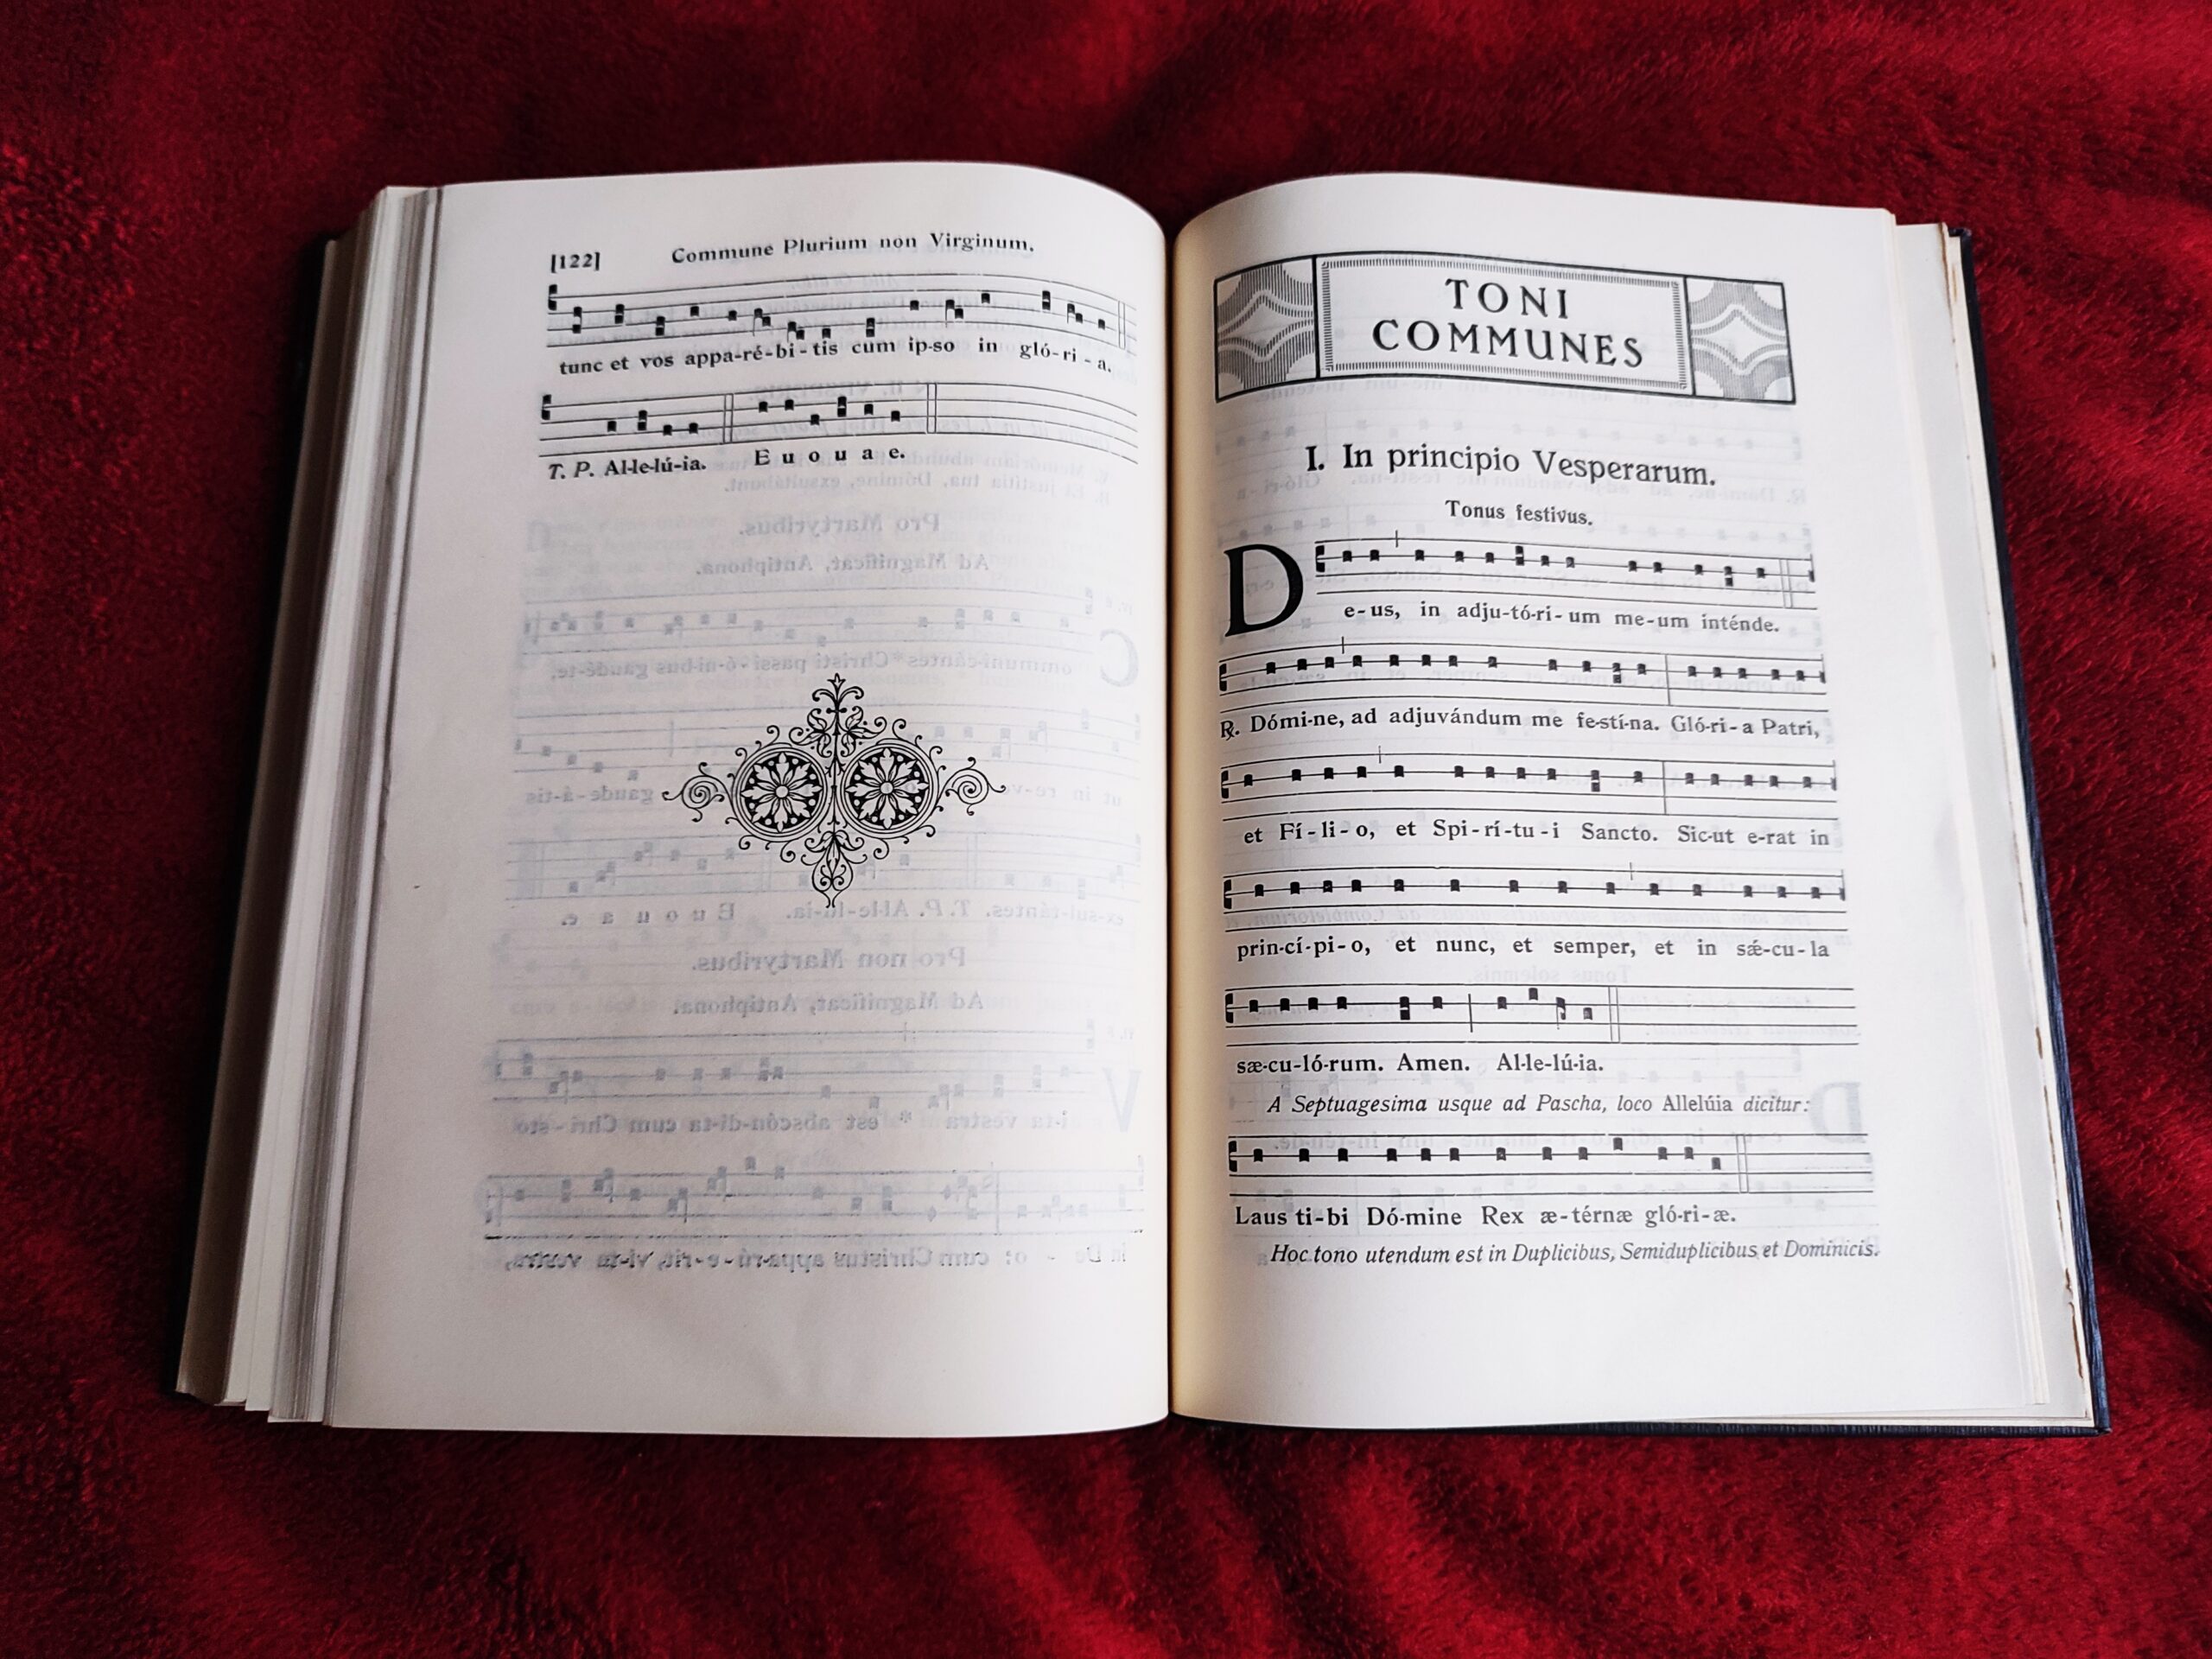 [122] Commune Plurium non Virginum.
tunc et vos appa-ré-bi-tis cum ip-so in gló-ri-a.
T. P. Al-le-lú-ia. E u o u a e.
TONI
COMMUNES
I. In principio Vesperarum.
Tonus festivus.
De-us, in adju-tó-ri-um me-um inténde.
℟. Dómi-ne, ad adjuvándum me fe-stí-na. Gló-ri-a Patri,
et Fí-li-o, et Spi-rí-tu-i Sancto. Sic-ut e-rat in
prin-cí-pi-o, et nunc, et semper, et in sǽ-cu-la
sæ-cu-ló-rum. Amen. Al-le-lú-ia.
A Septuagesima usque ad Pascha, loco Allelúia dicitur:
Laus ti-bi Dó-mine Rex æ-térnæ gló-ri-æ.
Hoc tono utendum est in Duplicibus, Semiduplicibus et Dominicis.